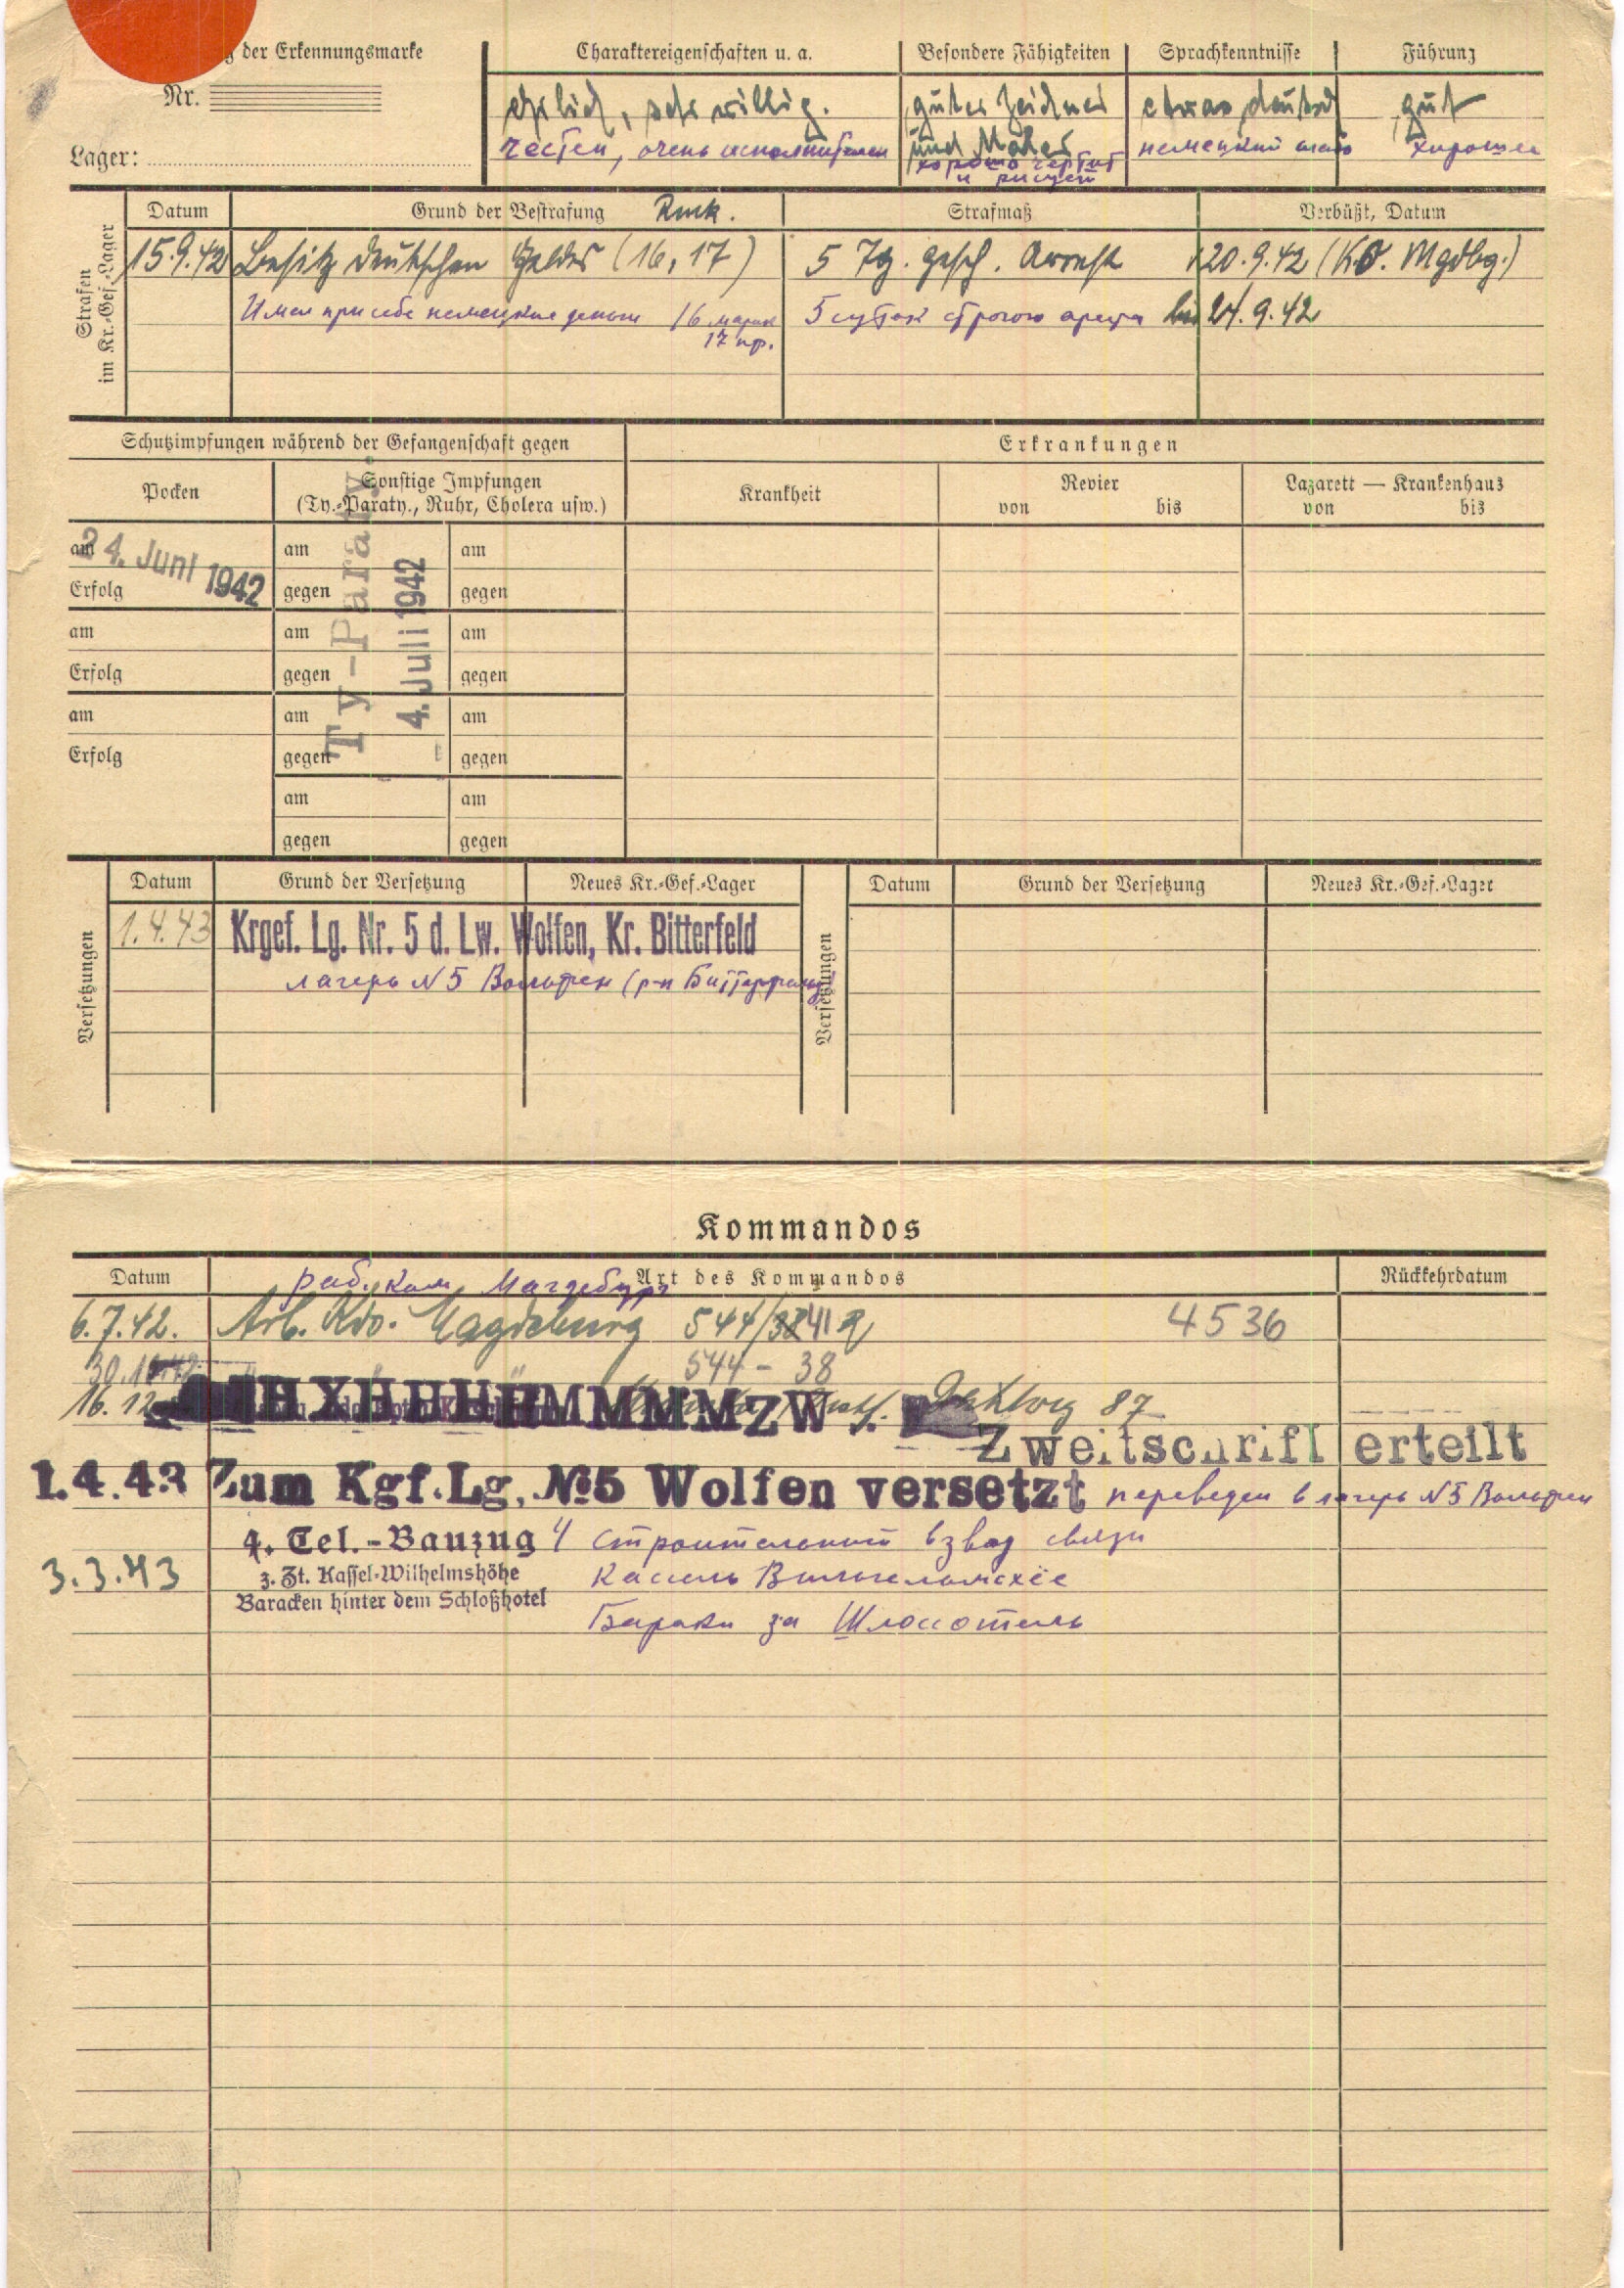 der Erkennungsmarke
Nr.
Lager:
Charaktereigenschaften u. a.
Besondere Fähigkeiten
Sprachkenntnisse
Führung
ehrlich, sehr willig.
guter Zeichner
etwas deutsch
gut
честен, очень исполнителен
und Maler
немецкий слабо
хорошее
хорошо чертит
и рисует
Strafen
im Kr.-Gef.-Lager
Datum
Grund der Bestrafung
Strafmaß
Verbüßt, Datum
15.9.42
Besitz deutschen Geldes (16,17)
5 Tg. gesch. Arrest
20.9.42 (Mgdbg.)
Имел при себе немецкие деньги 16 марок
17 пф.
5 суток строгого ареста
bis 24.9.42
Schutzimpfungen während der Gefangenschaft gegen
Erkrankungen
Pocken
Sonstige Impfungen
(Ty.-Paraty., Ruhr, Cholera usw.)
Krankheit
Revier
von bis
Lazarett — Krankenhaus
von bis
am
24. Juni 1942
am
am
Erfolg
gegen
gegen
am
am
am
Erfolg
gegen
gegen
am
am
am
Erfolg
gegen
gegen
am
am
gegen
gegen
Ty-Paraty.
4. Juli 1942
Versetzungen
Datum
Grund der Versetzung
Neues Kr.-Gef.-Lager
Versetzungen
Datum
Grund der Versetzung
Neues Kr.-Gef.-Lager
1.4.43
Krgef. Lg. Nr. 5 d. Lw. Wolfen, Kr. Bitterfeld
лагерь N5 Вольфен (р-н Биттерфельд)
Kommandos
Datum
Art des Kommandos
Rückkehrdatum
раб. ком. Магдебург
6.7.42.
Arb. Kdo. Magdeburg 544/
4536
544 - 38
16.12
87
Zweitschrift erteilt
1.4.43
Zum Kgf.Lg. №5 Wolfen versetzt
переведен в лагерь N5 Вольфен
4. Tel.-Bauzug
4 строительный взвод связи
3.3.43
z. Zt. Kassel-Wilhelmshöhe
Кассель Вильгельмсхёе
Baracken hinter dem Schloßhotel
Бараки за Шлоссотель